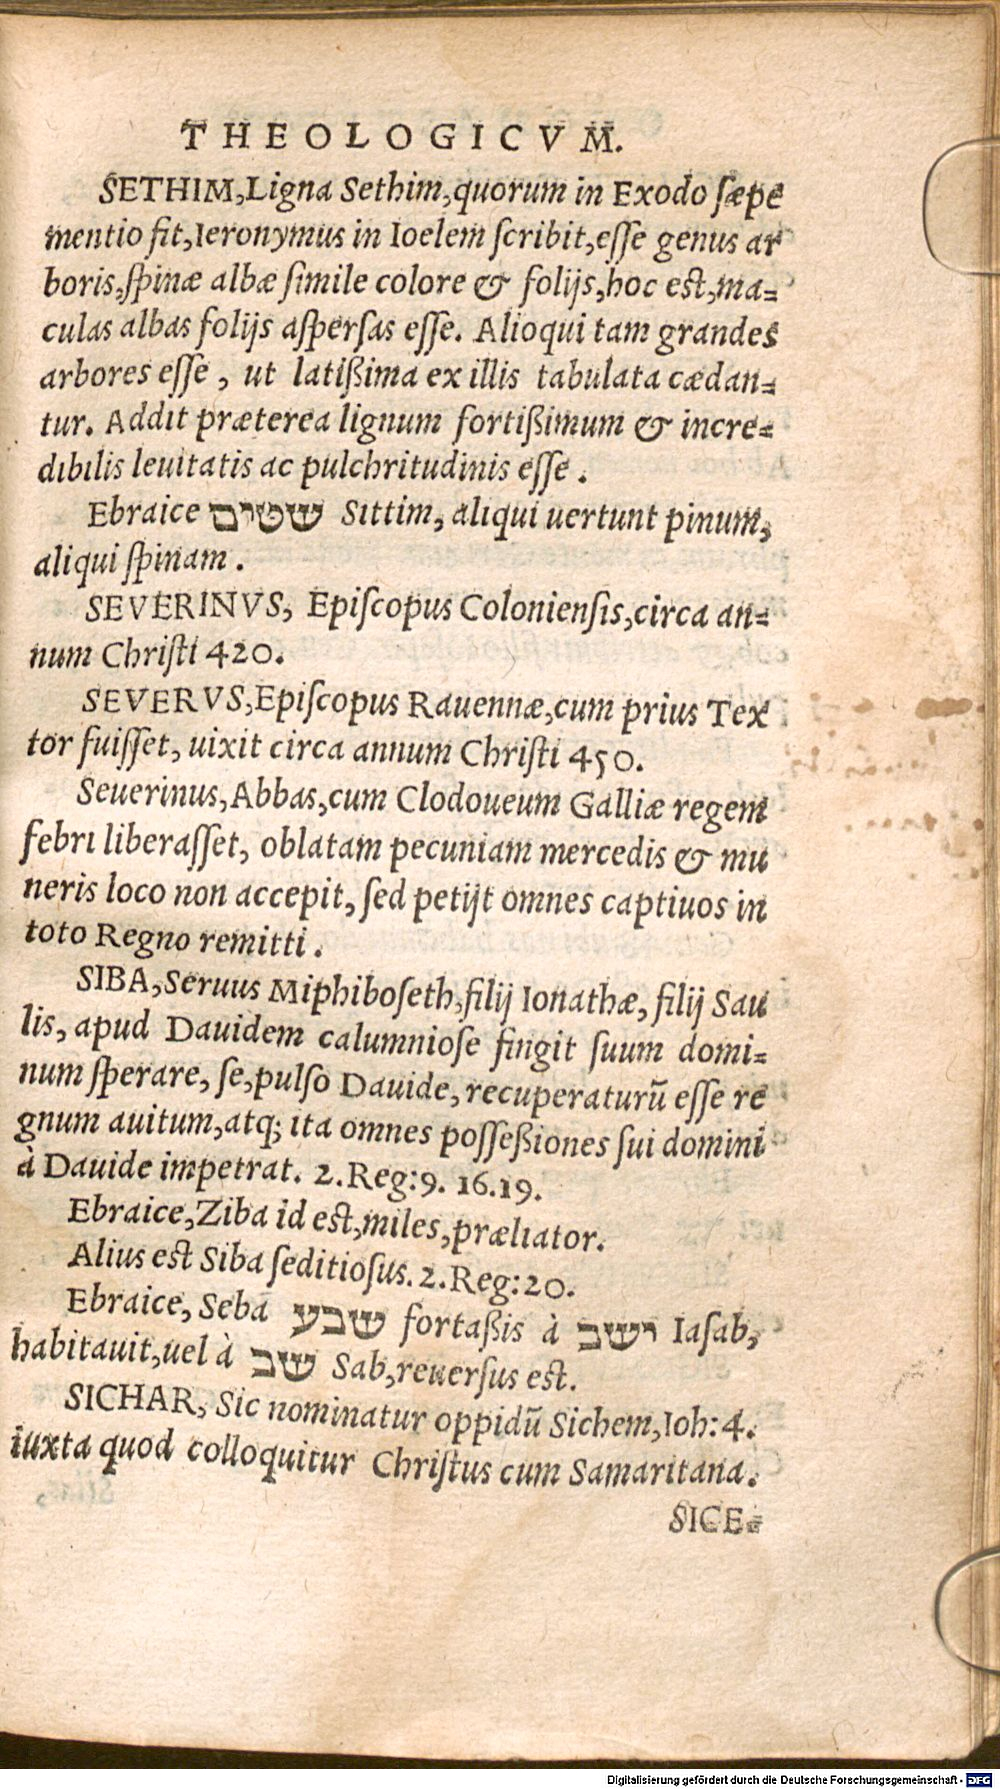 THEOLOGICVM.
SETHIM, Ligna Sethim, quorum in Exodo sæpe
mentio fit, Ieronymus in Ioelem scribit, esse genus ar
boris, spinæ albæ simile colore & folijs, hoc est, ma-
culas albas folijs aspersas esse. Alioqui tam grandes
arbores esse, ut latißima ex illis tabulata cædan-
tur. Addit præterea lignum fortißimum & incre-
dibilis leuitatis ac pulchritudinis esse.
Ebraice שטים Sittim, aliqui uertunt pinum,
aliqui spinam.
SEVERINVS, Episcopus Coloniensis, circa an-
num Christi 420.
SEVERVS, Episcopus Rauennæ, cum prius Tex
tor fuisset, uixit circa annum Christi 450.
Seuerinus, Abbas, cum Clodoueum Galliæ regem
febri liberasset, oblatam pecuniam mercedis & mu
neris loco non accepit, sed petijt omnes captiuos in
toto Regno remitti.
SIBA, Seruus Miphiboseth, filij Ionathæ, filij Sau
lis, apud Dauidem calumniose fingit suum domi-
num sperare, se, pulso Dauide, recuperaturū esse re
gnum auitum, atq; ita omnes posseßiones sui domini
à Dauide impetrat. 2. Reg: 9. 16. 19.
Ebraice, Ziba id est, miles, præliator.
Alius est Siba seditiosus. 2. Reg: 20.
Ebraice, Seba שבע fortaßis à ישב Iasab,
habitauit, uel à שב Sab, reuersus est.
SICHAR, Sic nominatur oppidū Sichem, Ioh: 4.
iuxta quod colloquitur Christus cum Samaritana.
SICE-
Digitalisierung gefördert durch die Deutsche Forschungsgemeinschaft - DFG